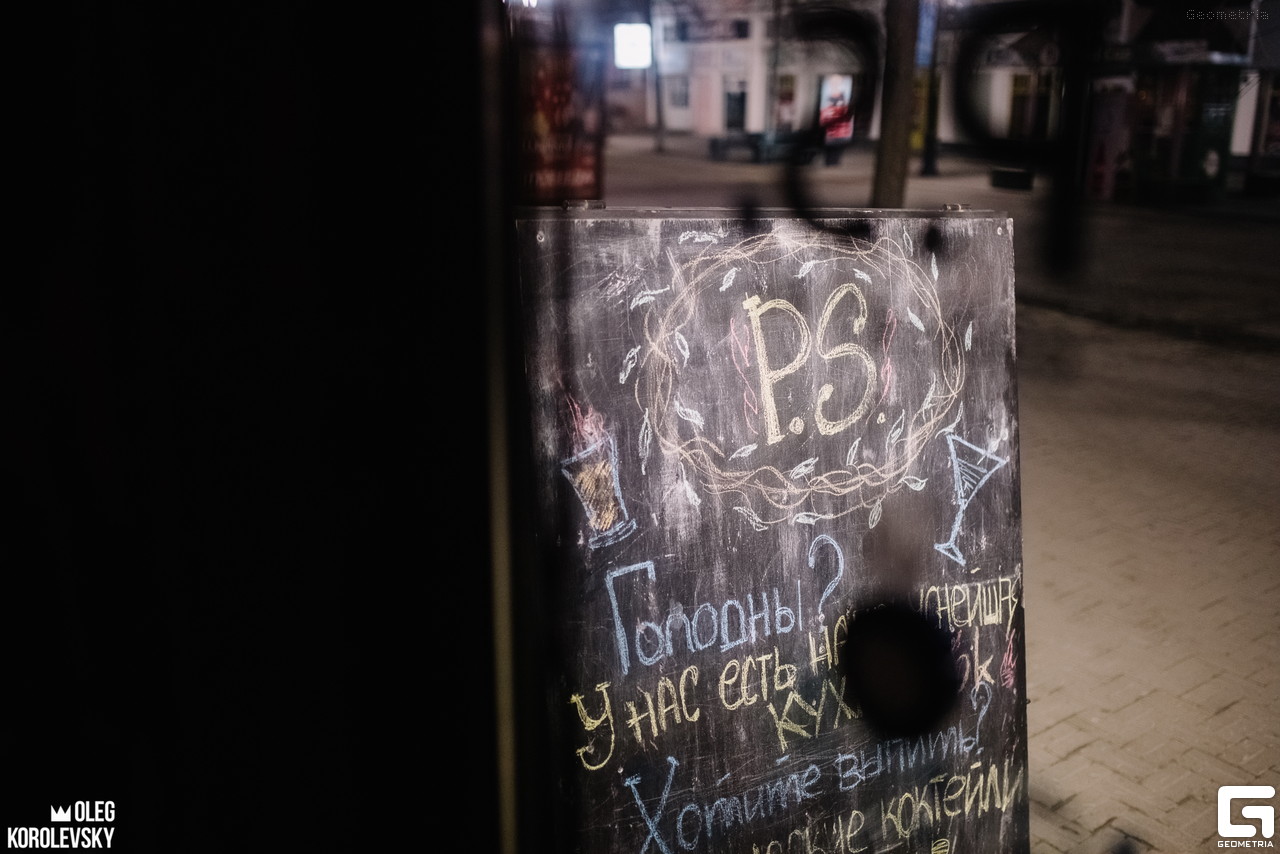 Geometria
P.S.
Голодны?
У нас есть
Хотите выпить?
коктейли
OLEG
KOROLEVSKY
GEOMETRIA